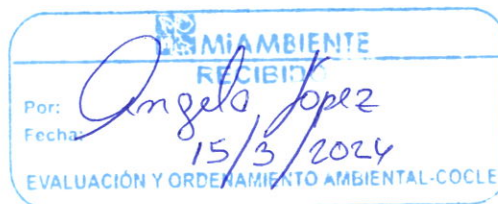 MiAMBIENTE
RECIBIDO
Por: Angela López
Fecha: 15/3/2024
EVALUACIÓN Y ORDENAMIENTO AMBIENTAL-COCLE